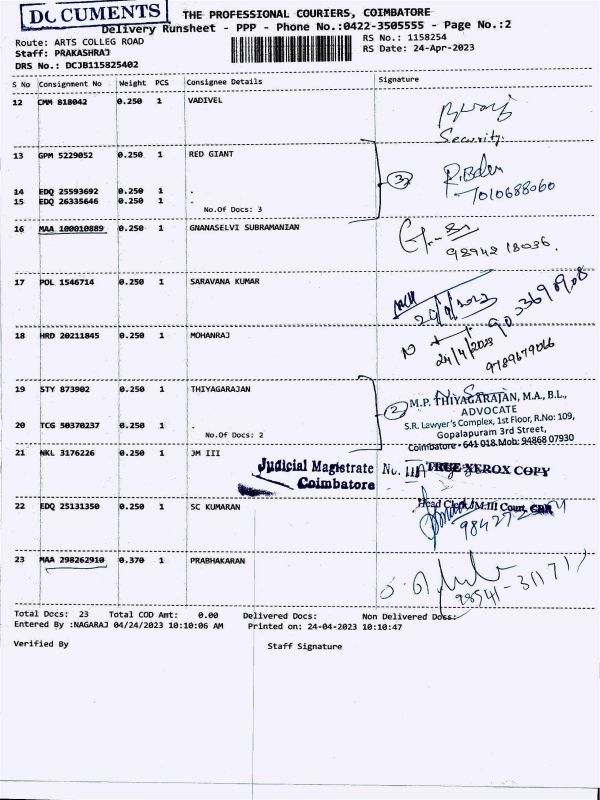 DOCUMENTS
THE PROFESSIONAL COURIERS, COIMBATORE
Delivery Runsheet - PPP - Phone No.:0422-3505555 - Page No.:2
Route: ARTS COLLEG ROAD
RS No.: 1158254
Staff: PRAKASHRAJ
RS Date: 24-Apr-2023
DRS No.: DCJB115825402
S No Consignment No Weight PCS Consignee Details Signature
12 CMM 818042 0.250 1 VADIVEL
Security.
13 GPM 5229052 0.250 1 RED GIANT
3
7010688060
14 EDQ 25593692 0.250 1 .
15 EDQ 26335646 0.250 1 .
No.Of Docs: 3
16 MAA 100010889 0.250 1 GNANASELVI SUBRAMANIAN
98942 18036.
17 POL 1546714 0.250 1 SARAVANA KUMAR
18 HRD 20211845 0.250 1 MOHANRAJ
24/4/2023
9789679066
19 STY 873902 0.250 1 THIYAGARAJAN
2
M.P. THIYAGARAJAN, M.A., B.L.,
ADVOCATE
S.R. Lawyer's Complex, 1st Floor, R.No: 109,
Gopalapuram 3rd Street,
Coimbatore - 641 018. Mob: 94868 07930
20 TCG 50370237 0.250 1 .
No.Of Docs: 2
21 NKL 3176226 0.250 1 JM III
Judicial Magistrate No. III
Coimbatore
TRUE XEROX COPY
22 EDQ 25131350 0.250 1 SC KUMARAN
Head Clerk, JM.III Court, CBE
23 MAA 298262910 0.370 1 PRABHAKARAN
Total Docs: 23 Total COD Amt: 0.00 Delivered Docs: Non Delivered Docs:
Entered By :NAGARAJ 04/24/2023 10:10:06 AM Printed on: 24-04-2023 10:10:47
Verified By Staff Signature